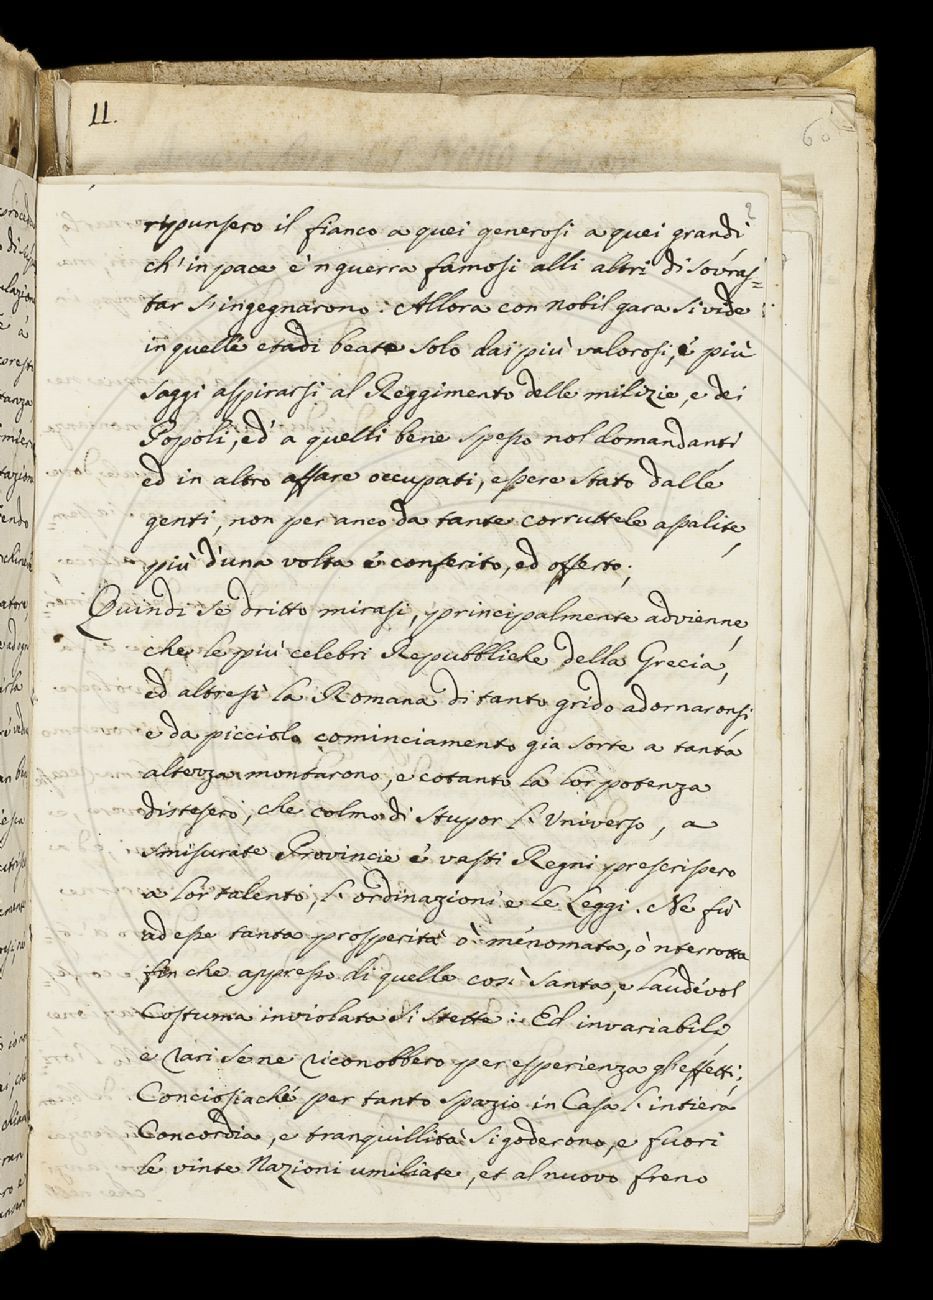 11.
60
2
ripunsero il fianco a quei generosi a quei grandi
ch' in pace è 'n guerra famosi alli altri di sovras=
tar s'ingegnarono: Allora con nobil gara si vide
in quelle etadi beate solo dai più valorosi, é più
saggi aspirarsi al Reggimento delle milizie, e dei
Popoli, ed' a quelli bene spesso nol domandanti
ed in altro affare occupati, essere stato dalle
genti, non per anco da tante corruttele assalite,
più d'una volta é conferito, ed offerto;
Quindi se dritto mirasi, principalmente advienne,
che le più celebri Repubbliche della Grecia,
ed altresì la Romana di tanto grido adornaronsi,
e da picciolo cominciamento gia sorte a tanta
altezza montarono, e cotanto la lor potenza
distesero, che colmo di stupor l'Universo, a
smisurate Provincie é vasti Regni prescrissero
a lor talento, l'ordinazioni e le Leggi. Ne fù
ad esse tanta prosperità ò menomata, ò nterrotta
fin che appresso di quelle così santa, e laudevol
Costuma inviolata si stette: Ed invariabili
e vari se ne riconobbero per esperienza gl'effetti;
Conciosiaché per tanto spazio in Casa l'intiera
Concordia, e tranquillità si goderono, e fuori
le vinte Nazioni umiliate, et al nuovo freno